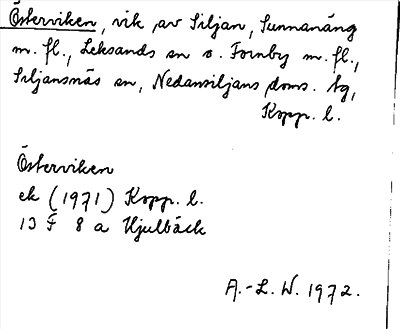 Österviken, vik av Siljan, Sunnanäng
m. fl., Leksands sn o. Fornby m. fl.,
Siljansnäs sn, Nedansiljans doms. tg,
Kopp. l.
Österviken
ek (1971) Kopp. l.
13 F 8 a Hjulbäck
A.-L. W. 1972.